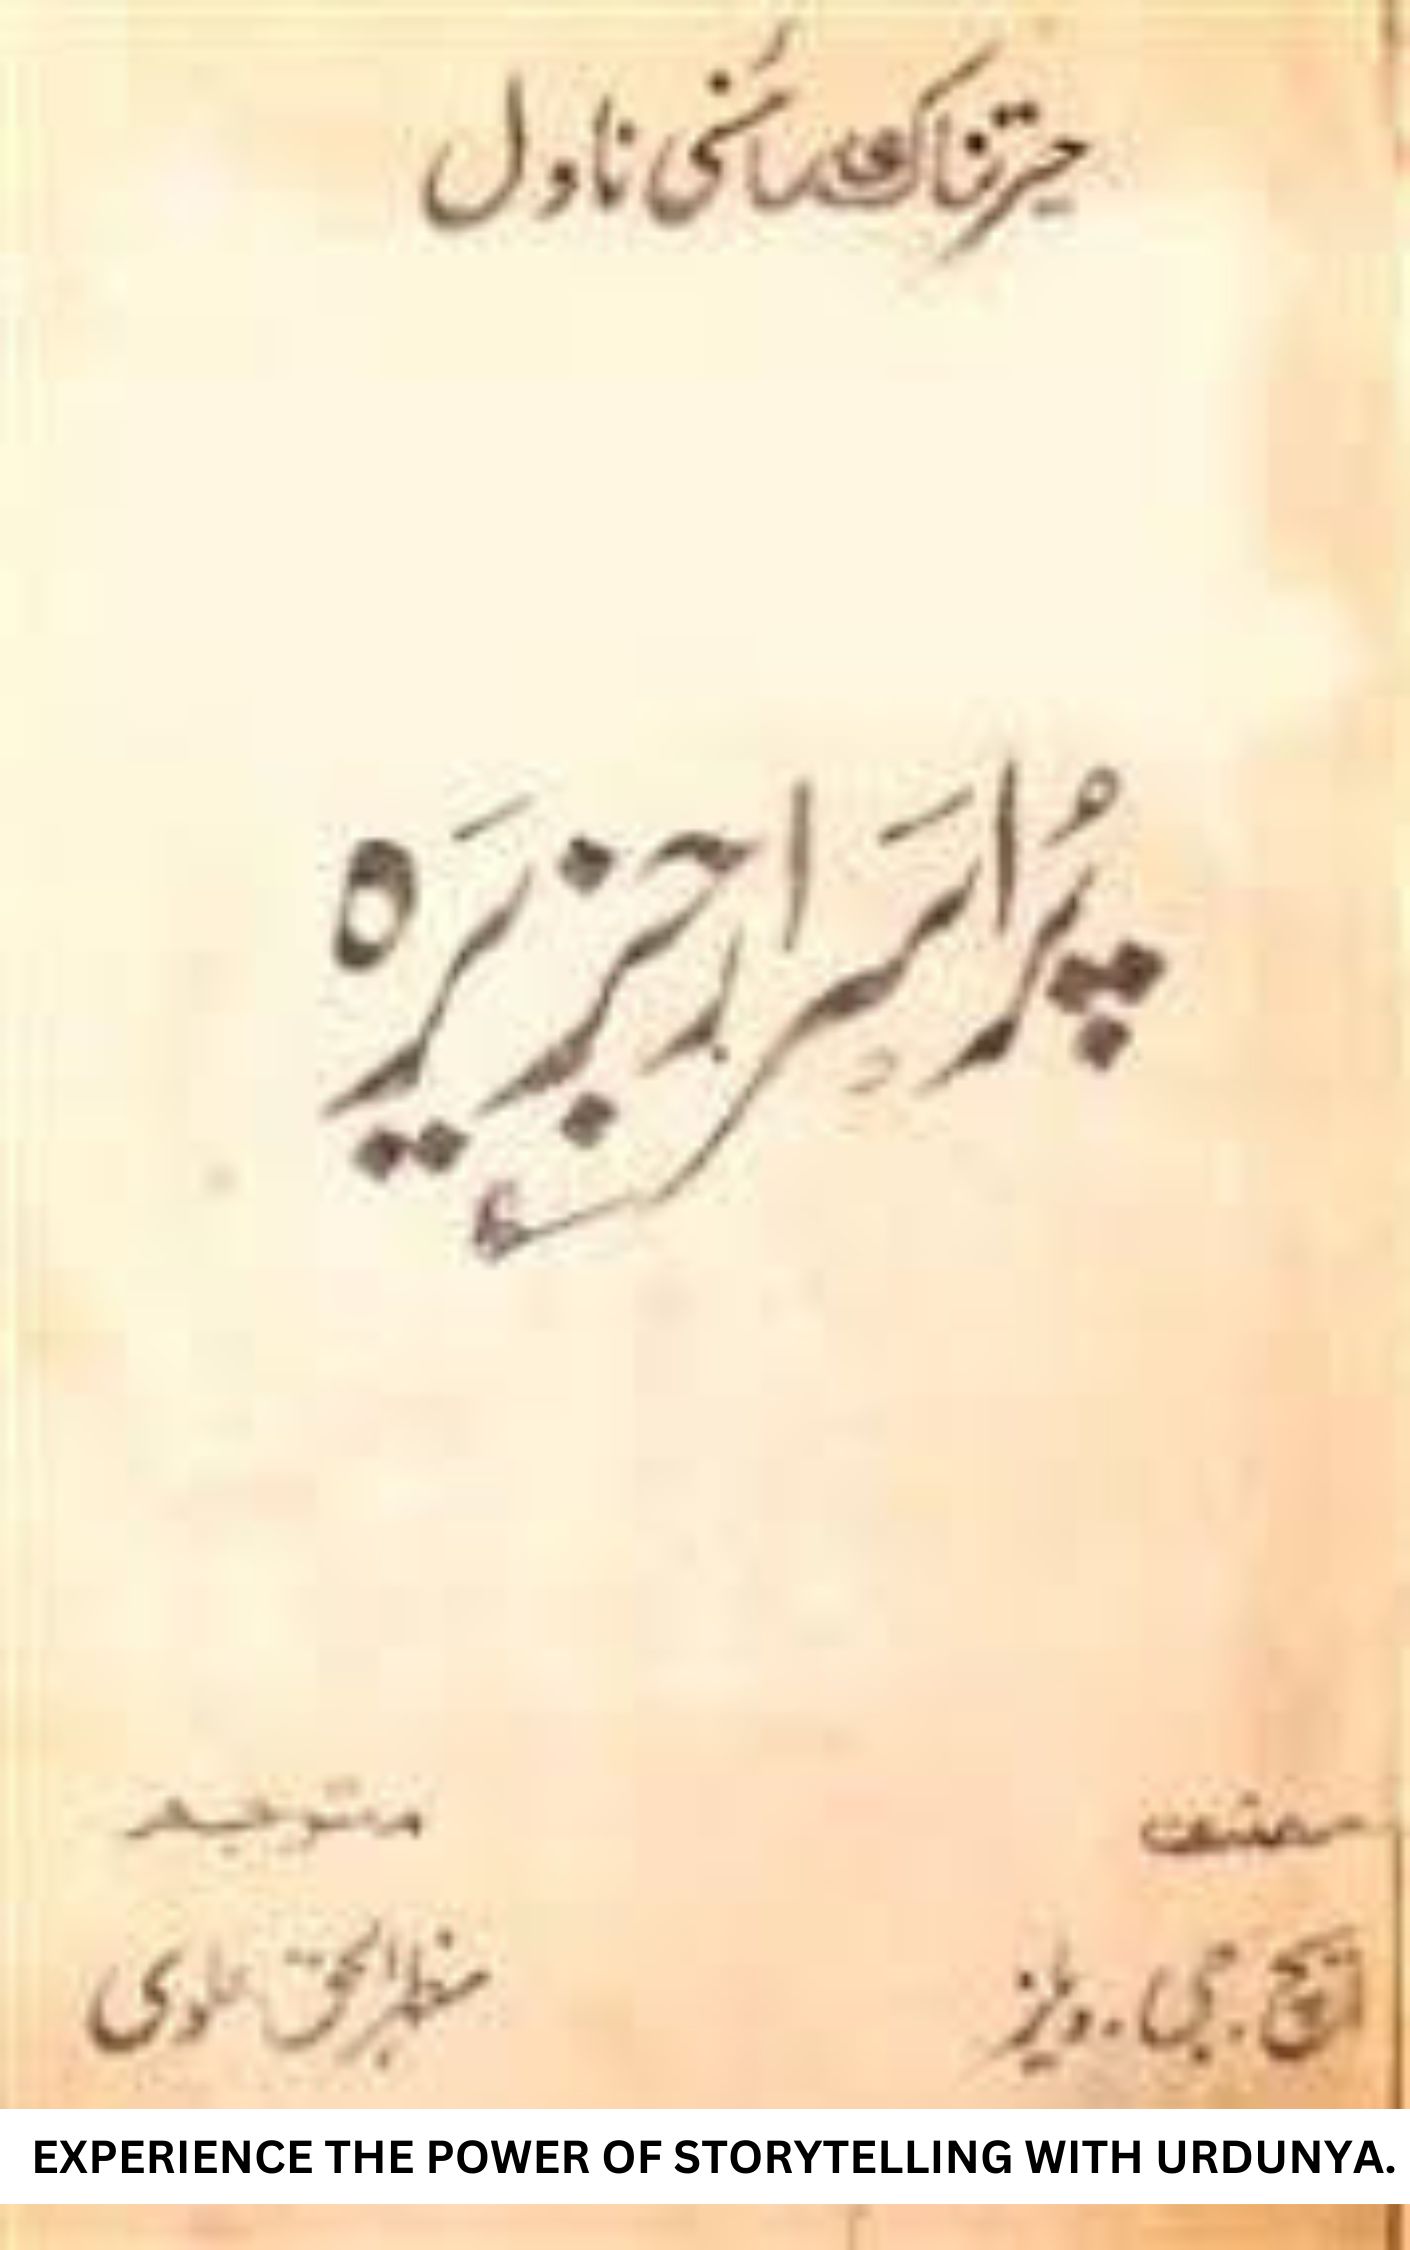 حیرتناک سائنسی ناول
پُراسرار جزیرہ
مصنف
ایچ . جی . ویلز
مترجم
مظہر الحق علوی
EXPERIENCE THE POWER OF STORYTELLING WITH URDUNYA.